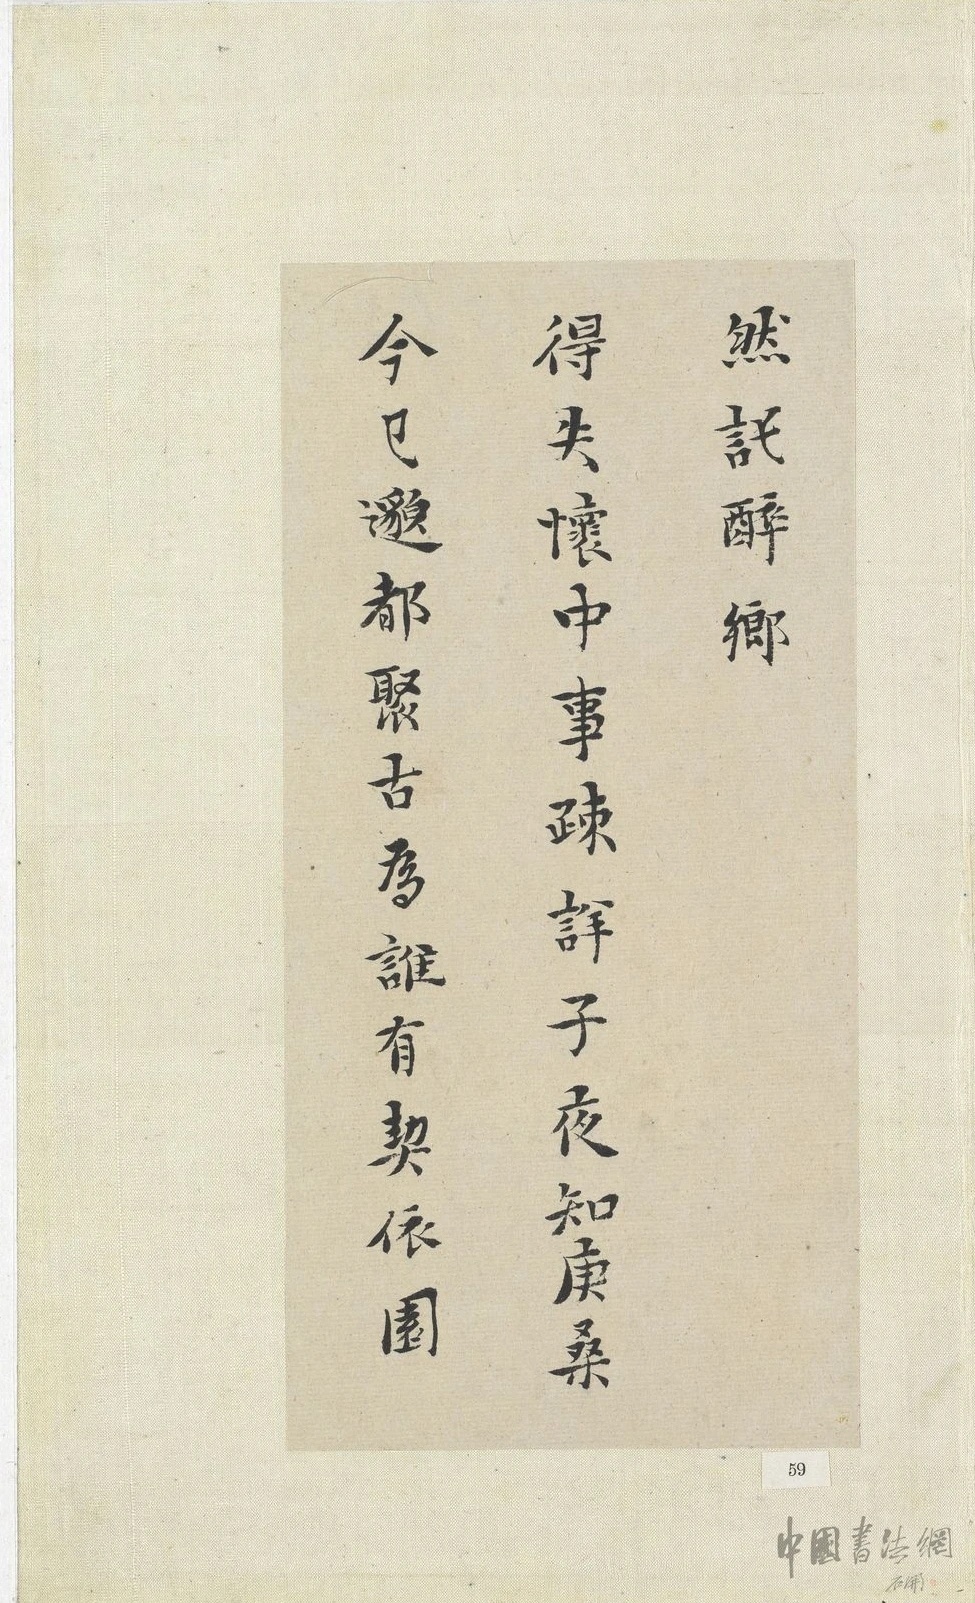 然託醉鄉
得失懷中事疎詳子夜知庚桑
今已邈都聚古為誰有契依園
59
中國書法網